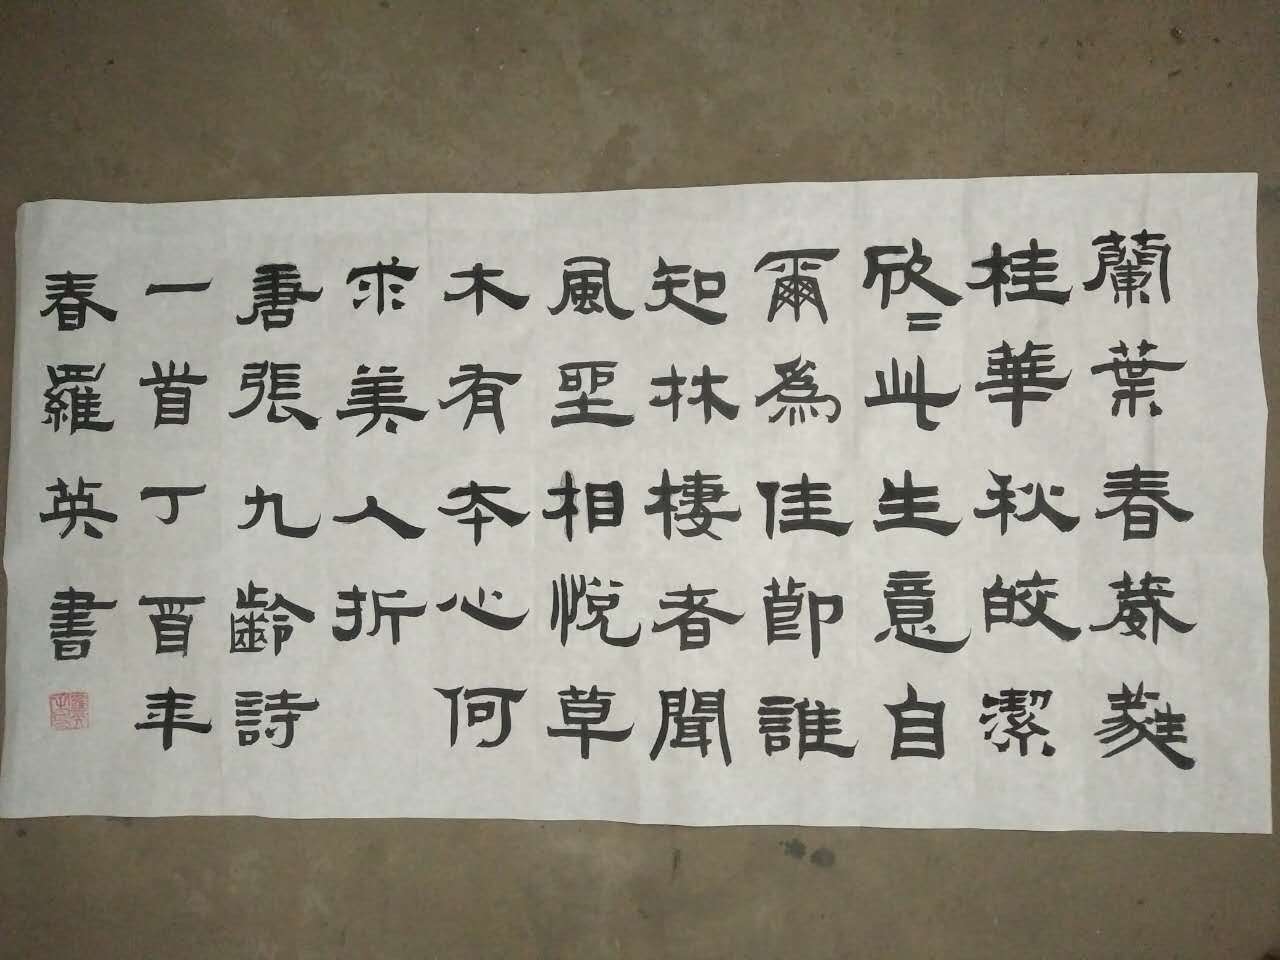 蘭葉春葳蕤
桂華秋皎潔
欣〻此生意自
爾為佳節誰
知林棲者聞
風坐相悅草
木有本心何
求美人折
唐張九齡詩
一首丁酉年
春羅英書